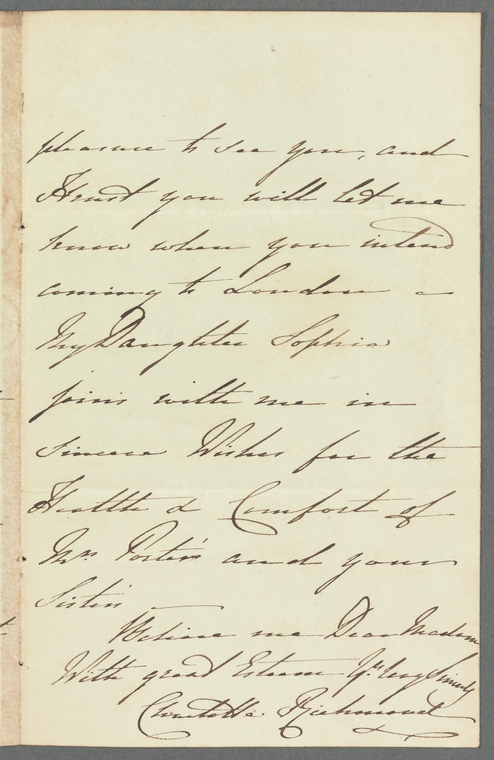 pleasure to see you, and
I trust you will let me
know when you intend
coming to London –
My Daughter Sophia
joins with me in
sincere Wishes for the
Health & Comfort of
Mrs Porter's and your
Sister
Believe me Dear Madam
With great Esteem Yrs very Sincerely
Charlotte Richmond